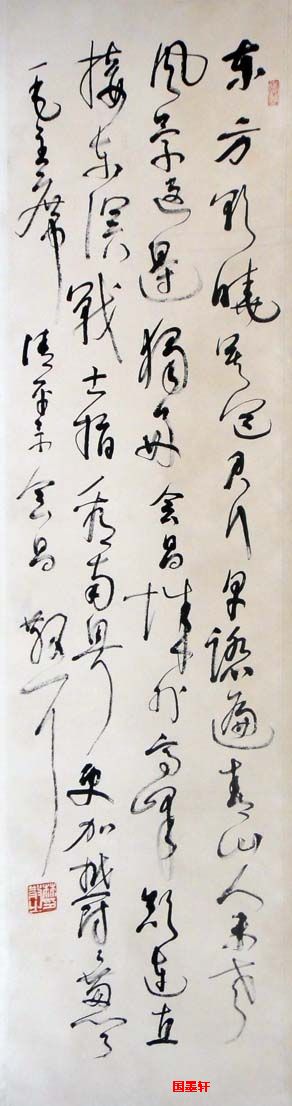 东方欲曉莫道君行早踏遍青山人未老
风景這邊獨好会昌城外高峰顛連直
接东溟戰士指看南粤更加鬱鬱葱葱
毛主席清平乐会昌
国墨轩